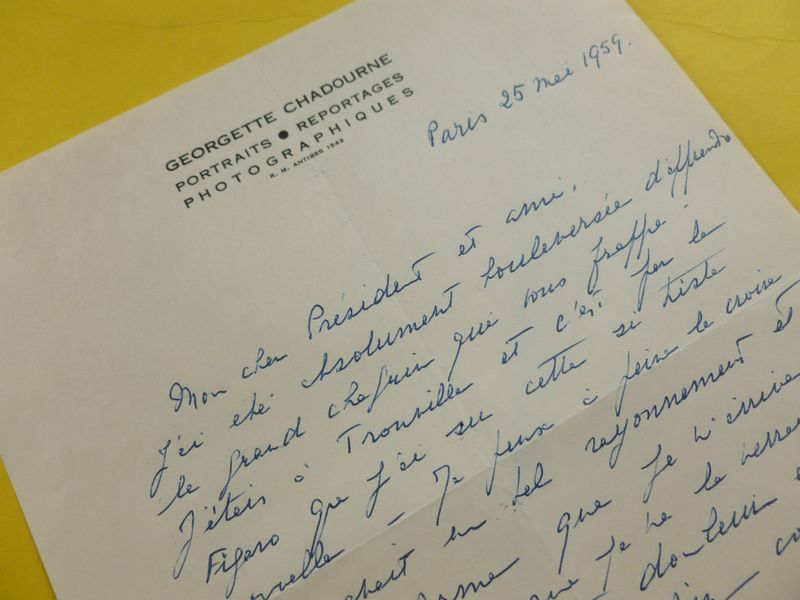 GEORGETTE CHADOURNE
PORTRAITS • REPORTAGES
PHOTOGRAPHIQUES
R. M. ANTIBES 1843
Paris 25 mai 1959.
Mon cher Président et ami,
J'ai été absolument bouleversée d'apprendre
le grand chagrin qui vous frappe.
J'étais à Trouville et c'est par le
Figaro que j'ai su cette si triste
nouvelle – Je peux à peine le croire
un tel rayonnement et
que je n'arrive
que je ne la verrai
douleur